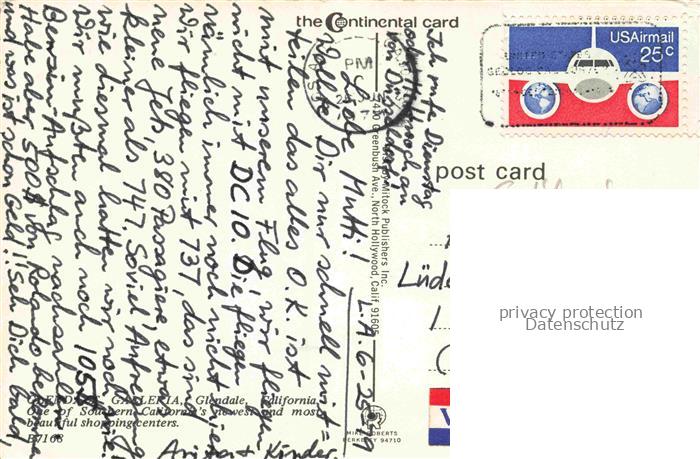 the Continental card
USAirmail
25c
PM
post card
Published by Mitock Publishers Inc.
17430 Greenbush Ave., North Hollywood, Calif. 91605
L.A. 6-25-79
Liebe Mutti!
Wollte Dir nur schnell mit=
teilen das alles O.K. ist
mit unserem Flug, wir fliegen
nicht mit DC 10. Die fliegen
nämlich immer noch nicht hier
Wir fliegen mit 737, das sind
neue Jets, 380 Passagiere, etwas
kleiner als 747. Soviel Aufregung
wie diesmal hatten wir noch nie.
Wir mußten auch noch 105$
Benzin Aufschlag nachzahlen
Habe aber 500$ von Rolando bekomme
und was ist schon Geld!! Seh Dich bald,
Kinder
Ich rufe Dienstag
oder Mittwoch an
von Düsseldorf
GLENDALE GALLERIA, Glendale, California.
One of Southern California's newest and most
beautiful shopping centers.
B7168
MIKE ROBERTS
BERKELEY 94710
Lüde
privacy protection
Datenschutz